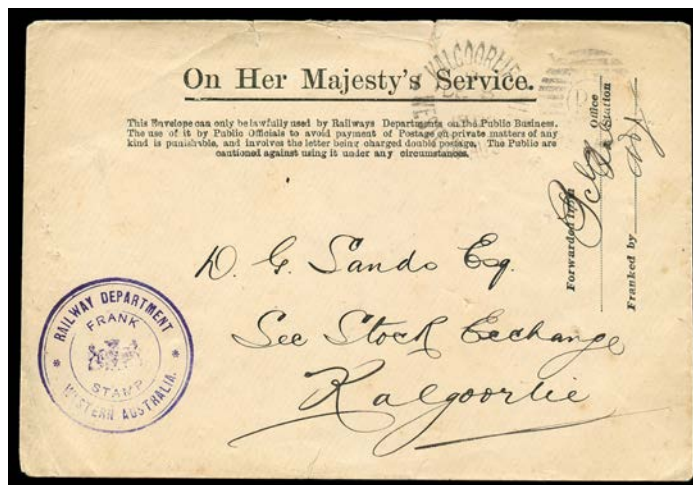 On Her Majesty's Service.
This Envelope can only be lawfully used by Railways Departments on the Public Business.
The use of it by Public Officials to avoid payment of Postage on private matters of any
kind is punishable, and involves the letter being charged double postage. The Public are
cautioned against using it under any circumstances.
KALGOORLIE
Forwarded from
Office
Station
Franked by
D. G. Sando Esq.
Sec Stock Exchange
Kalgoorlie
RAILWAY DEPARTMENT
FRANK
STAMP
WESTERN AUSTRALIA.